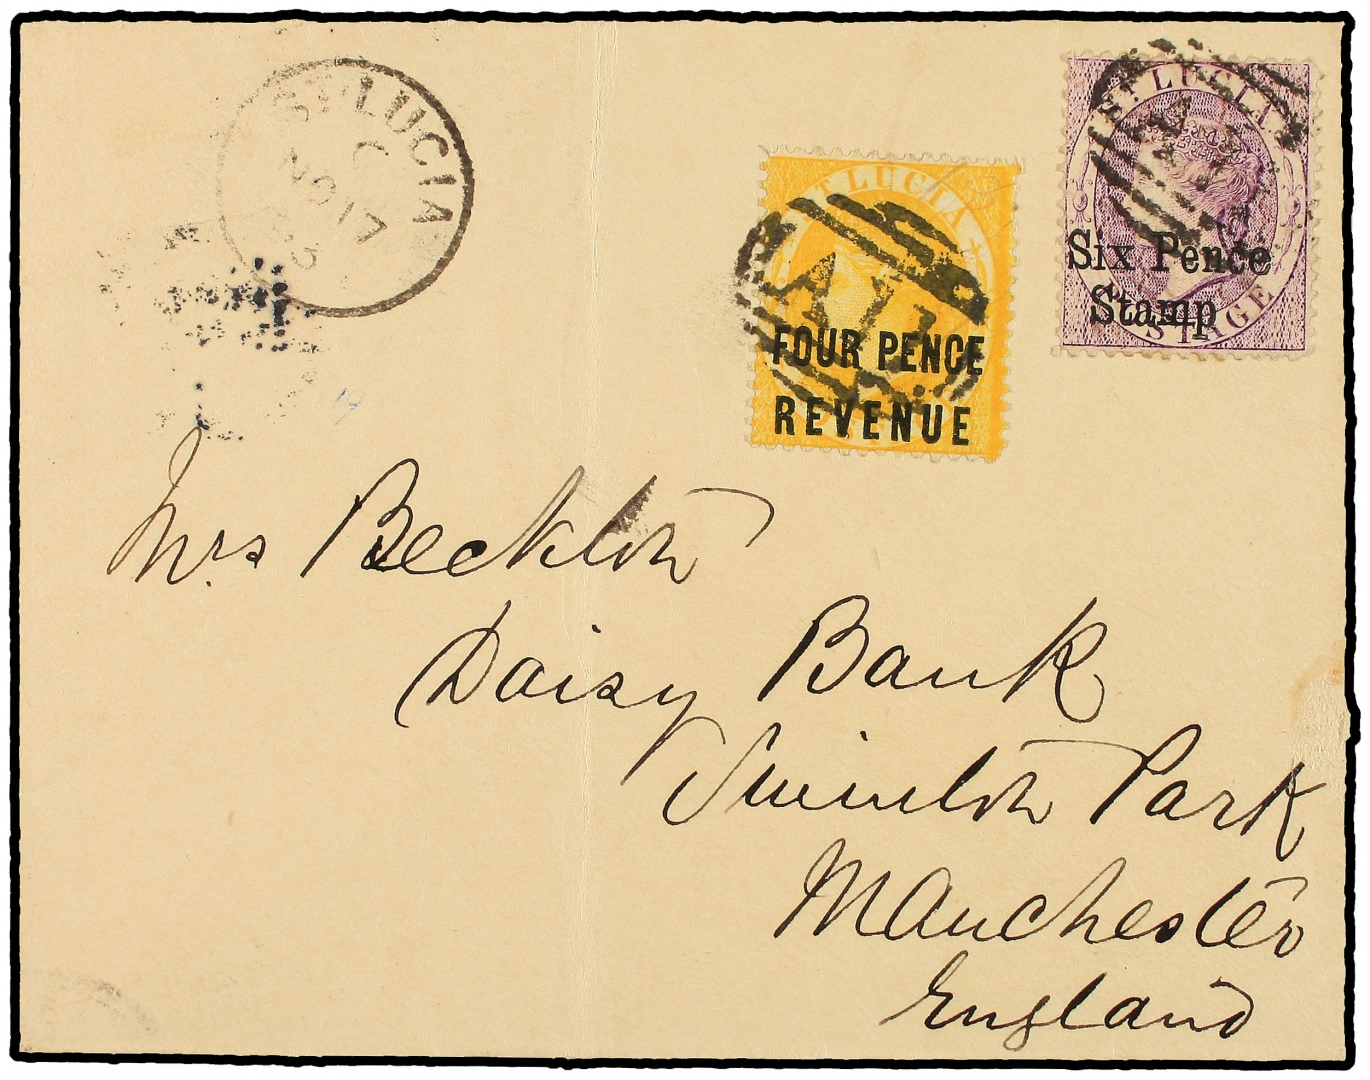 ST LUCIA
C
NO 17
ST LUCIA
POSTAGE
Six Pence
Stamp
ST LUCIA
A11
FOUR PENCE
REVENUE
Mrs Beckton
Daisy Bank
Swinton Park
Manchester
England